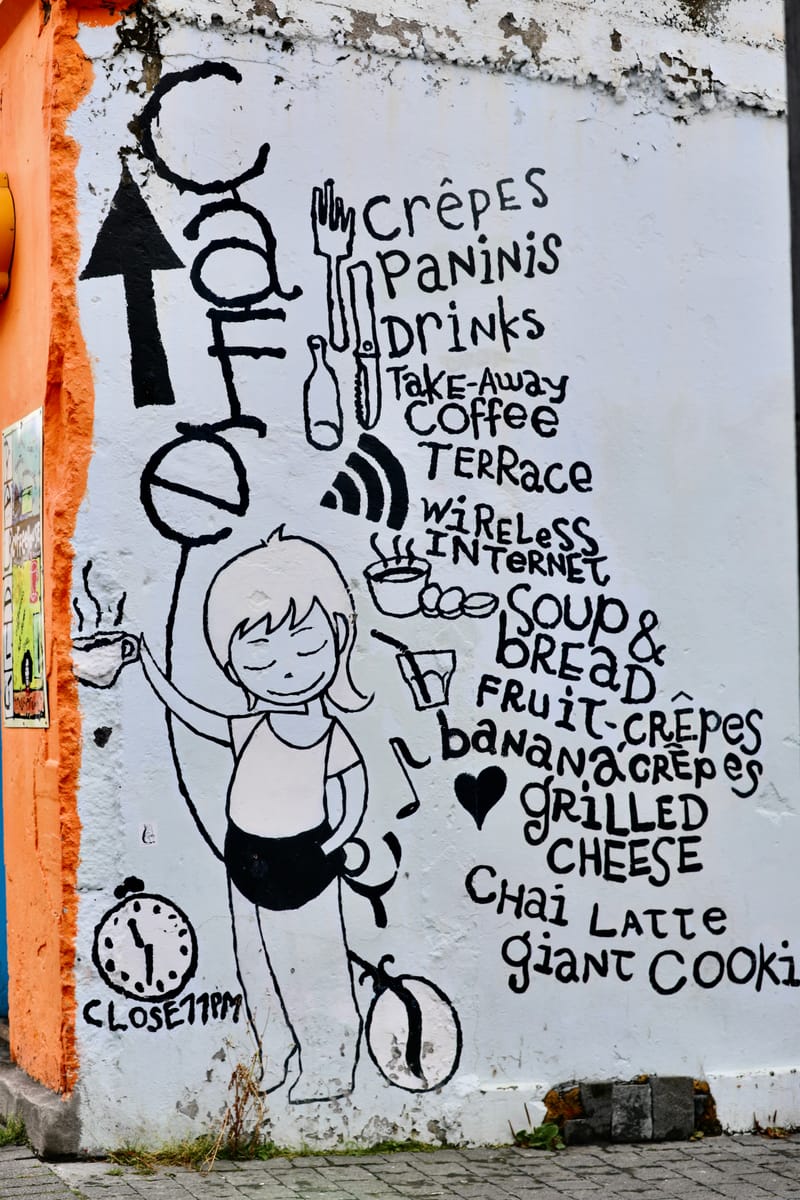 Cafe
CRÊPES
PANINIS
DRINKS
TAKE-AWAY
COFFEE
TERRACE
WIRELESS
INTERNET
SOUP &
BREAD
FRUIT-CRÊPES
BANANA CRÊPES
GRILLED
CHEESE
CHAI LATTE
GIANT COOKI
CLOSE 11PM